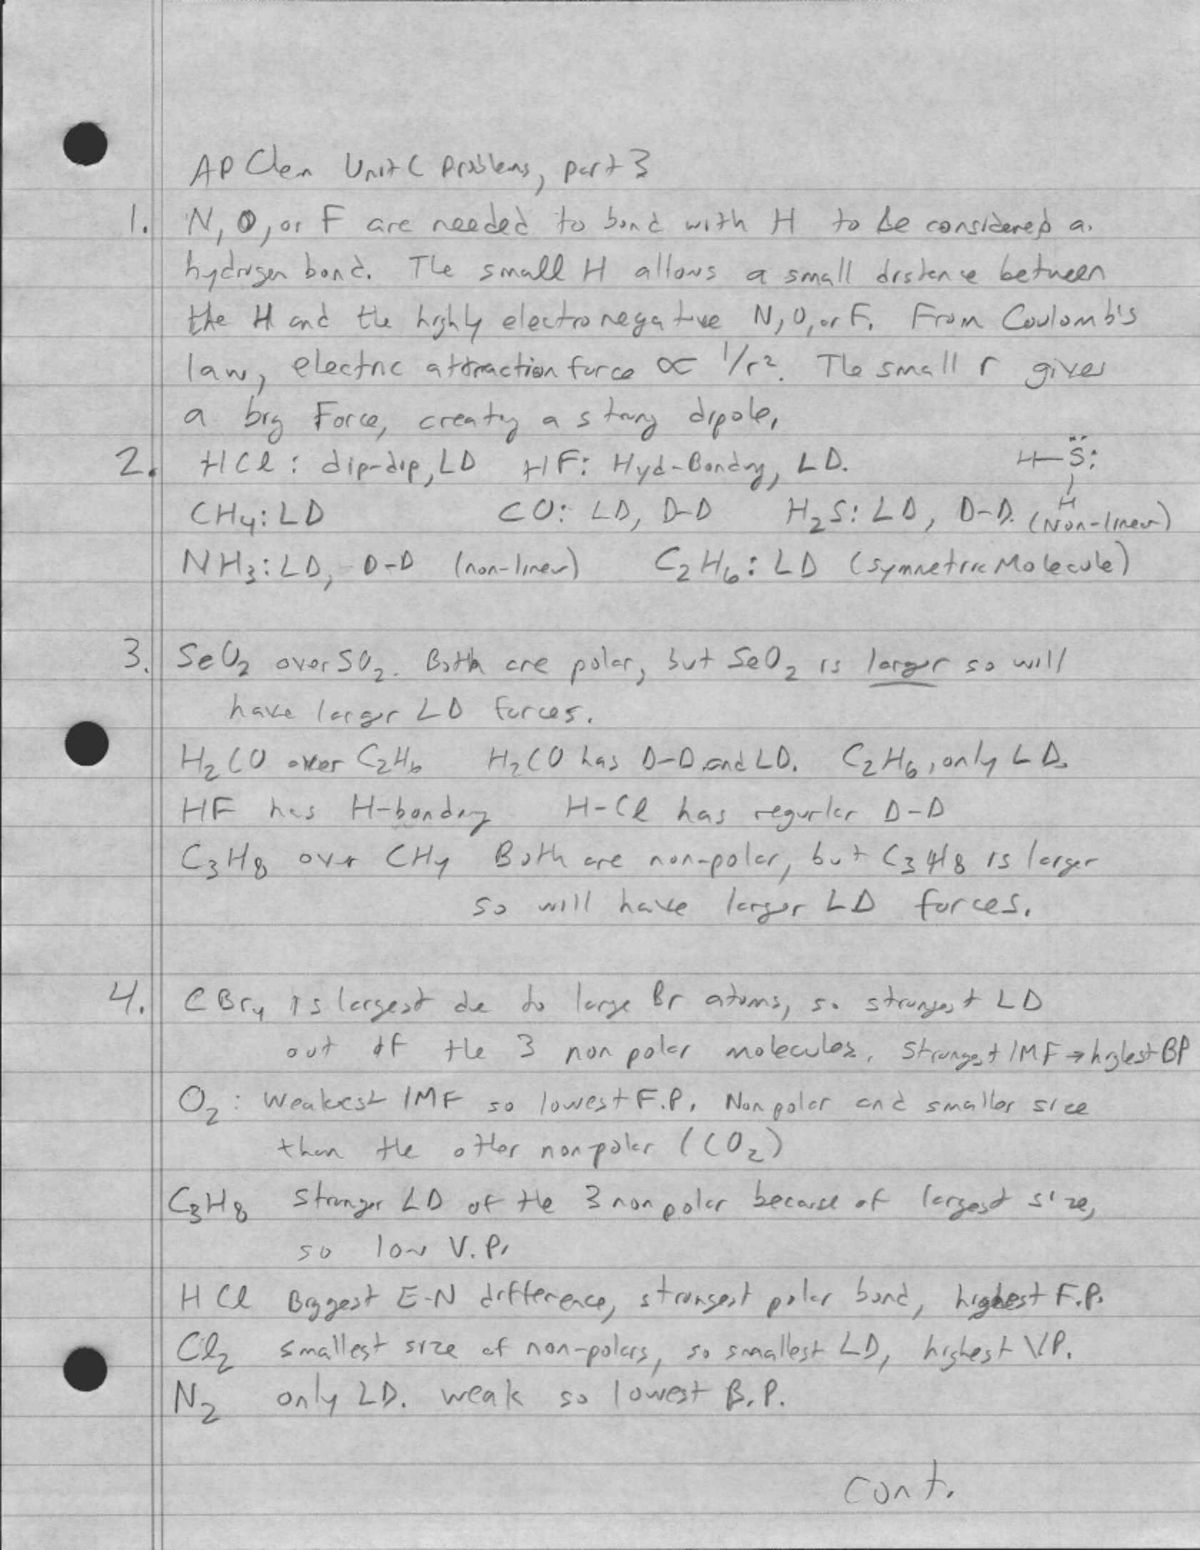 AP Chem Unit C Problems, part 3
1. N, O, or F are needed to bond with H to be considered a
hydrogen bond. The small H allows a small distance between
the H and the highly electronegative N, O, or F. From Coulomb's
law, electric attraction force ∝ 1/r². The small r gives
a big Force, creating a strong dipole.
2. HCl: dip-dip, LD HF: Hyd-Bonding, LD. H–S̈:
H
CH₄: LD CO: LD, D-D H₂S: LD, D-D. (Non-linear)
NH₃: LD, D-D (non-linear) C₂H₆: LD (symmetric Molecule)
3. SeO₂ over SO₂. Both are polar, but SeO₂ is larger so will
have larger LD forces.
H₂CO over C₂H₆ H₂CO has D-D and LD. C₂H₆, only LD.
HF has H-bonding H-Cl has regurlar D-D
C₃H₈ over CH₄ Both are non-polar, but C₃H₈ is larger
so will have larger LD forces.
4. CBr₄ is largest due to large Br atoms, so strongest LD
out of the 3 non polar molecules. Strongest IMF → highest BP
O₂: Weakest IMF so lowest F.P. Nonpolar and smaller size
than the other nonpolar (CO₂)
C₃H₈ Stronger LD of the 3 non polar because of largest size,
so low V.P.
HCl Biggest E-N difference, strongest polar bond, highest F.P.
Cl₂ smallest size of non-polars, so smallest LD, highest V.P.
N₂ only LD. weak so lowest B.P.
cont.